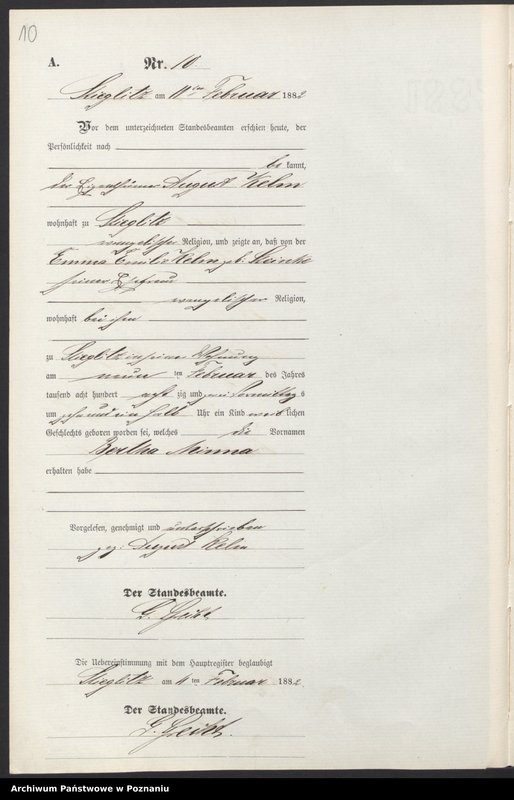 10
A.
Nr. 10
Stieglitz am 11ten Februar 1882
Vor dem unterzeichneten Standesbeamten erschien heute, der
Persönlichkeit nach
be kannt,
der Eigenthümer August Kelm
wohnhaft zu Stieglitz
evangelischer Religion, und zeigte an, daß von der
Emma Emilie Kelm geb.
seiner Ehefrau
evangelischer Religion,
wohnhaft bei ihm
zu Stieglitz in seiner Wohnung
am neun ten Februar des Jahres
tausend acht hundert acht zig und zwei Vormittag s
um zehn und ein halb Uhr ein Kind weib lichen
Geschlechts geboren worden sei, welches die Vornamen
Bertha Minna
erhalten habe
Vorgelesen, genehmigt und unterschrieben
gez. August Kelm
Der Standesbeamte.
G.
Die Uebereinstimmung mit dem Hauptregister beglaubigt
Stieglitz am 11 ten Februar 1882
Der Standesbeamte.
G.
Archiwum Państwowe w Poznaniu